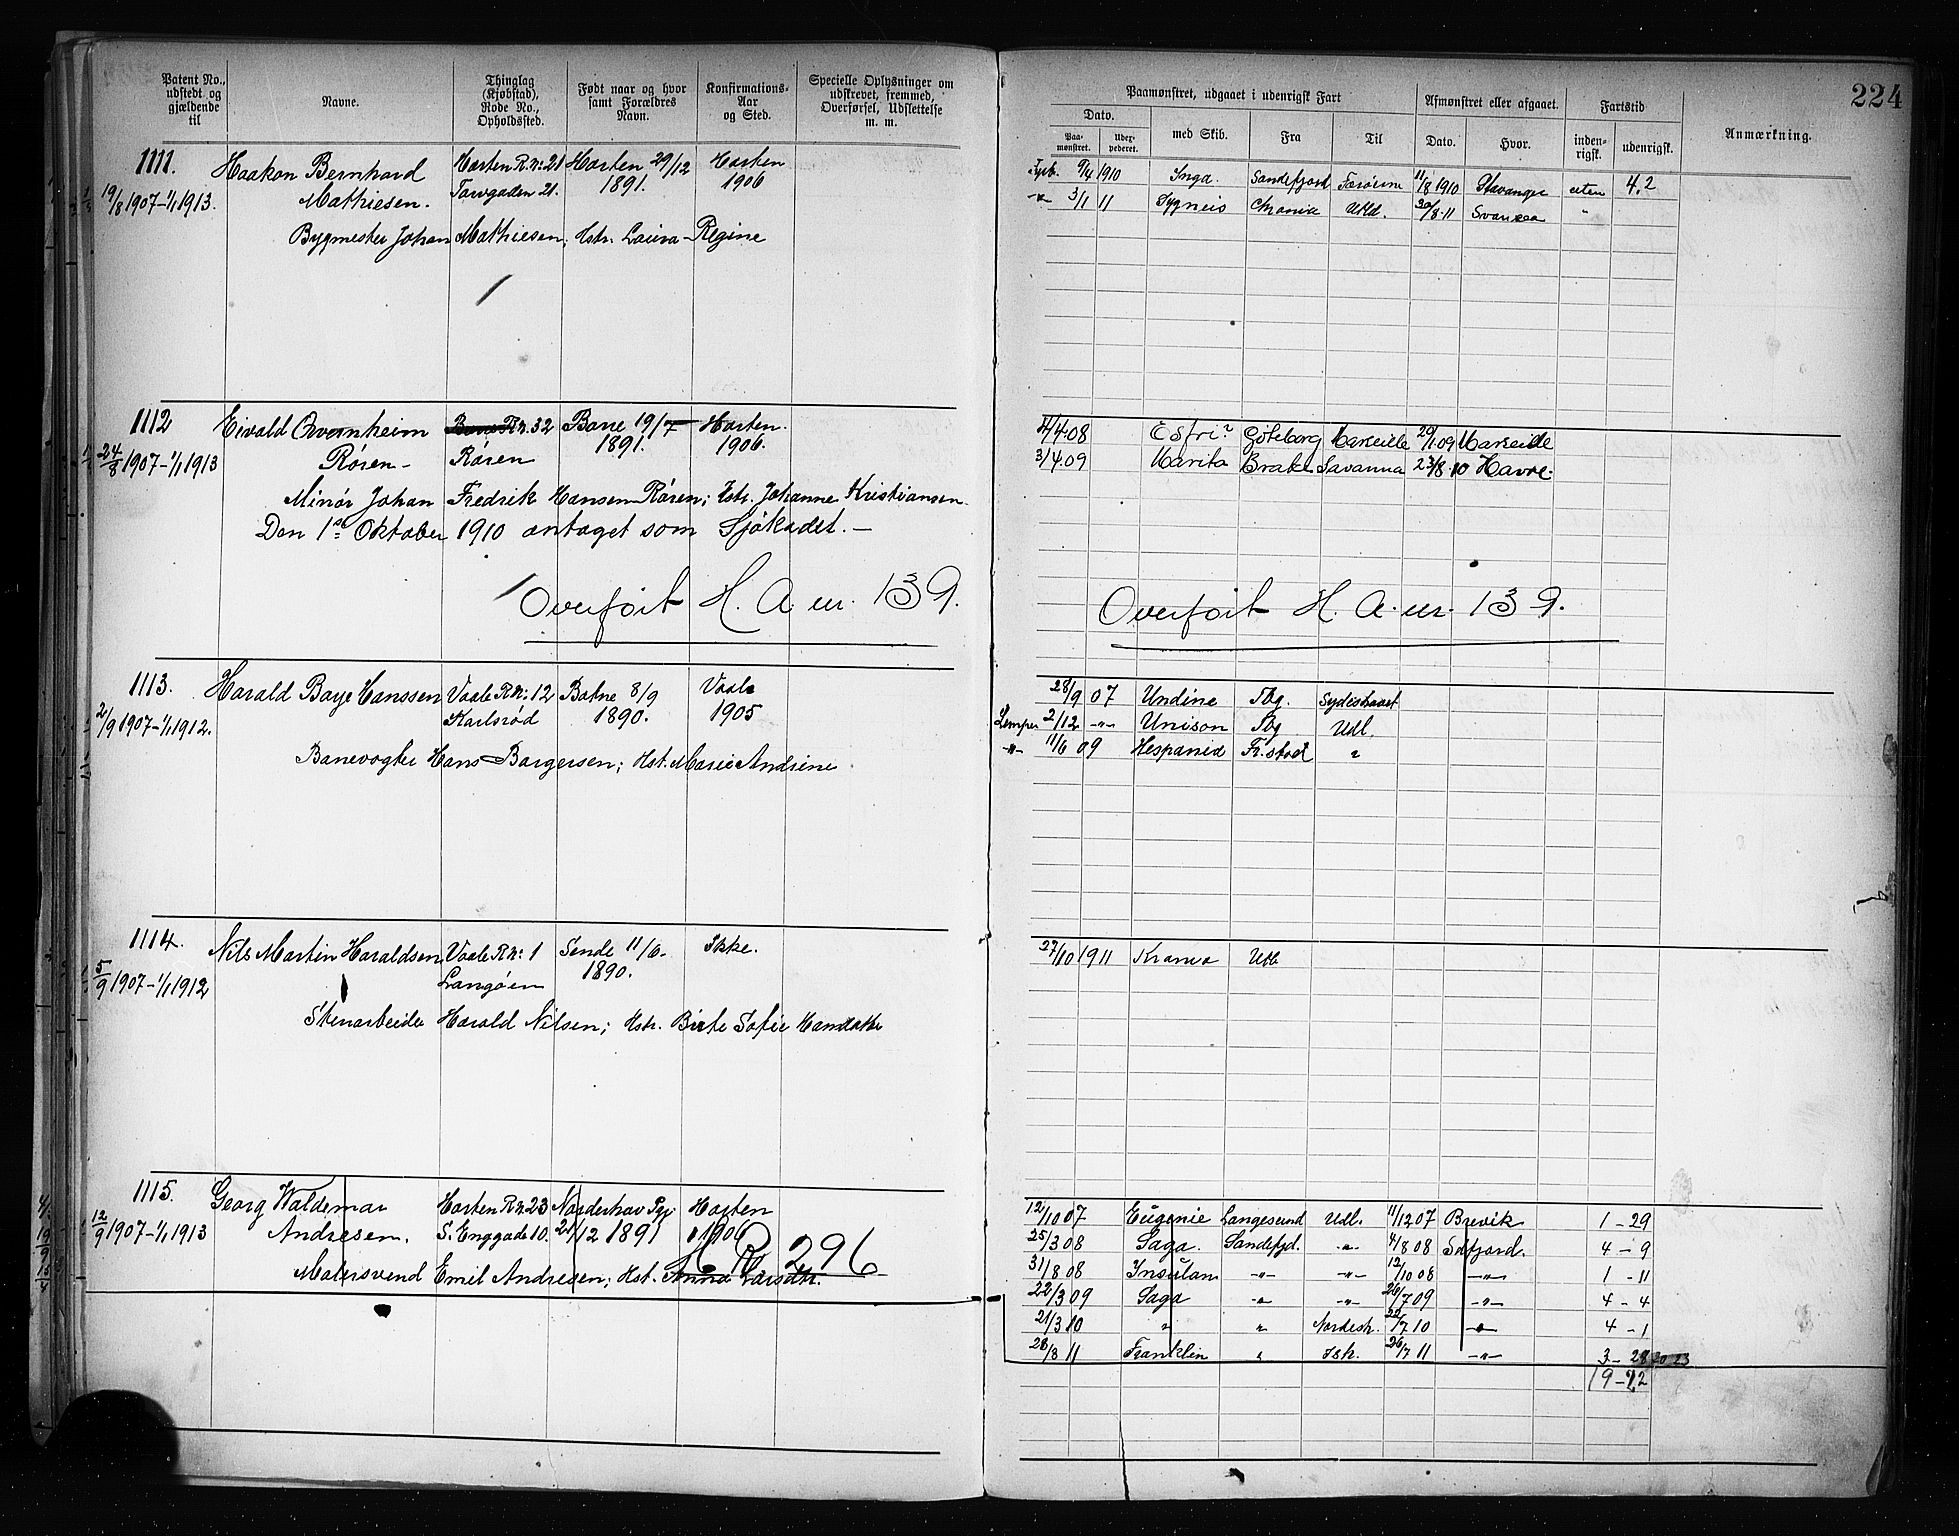 Patent No., udstedt og gjældende til
Navne.
Thinglag (Kjøbstad), Rode No., Opholdssted.
Født naar og hvor samt Forældres Navn.
Konfirmations-Aar og Sted.
Specielle Oplysninger om udskrevet, fremmed, Overførsel, Udslettelse m. m.
1111. Haakon Bernhard Horten R.n: 21 Horten 29/12 Horten
19/8 1907-1/1 1913. Mathiesen. Torvgaden 21. 1891. 1906
Bygmester Johan Mathiesen; Hstr. Laura Regine
1112 Eivald Ovornheim R.n. 32 Borre 19/7 Horten.
24/8 1907-1/1 1913 Røren- Røren 1891. 1906.
Minør Johan Fredrik Hansen Røren; Hstr. Johanne Kristiansen.
Den 1ste Oktober 1910 antaget som Sjøkadet. -
Overført H. A nr. 139.
1113. Harald Borge Hanssen Vaale R.n: 12 Botne 8/9 Vaale
2/9 1907-1/1 1912. Karlsrød 1890. 1905
Banevogter Hans Borgersen; Hst. Marie Andrine
1114. Nils Martin Haraldsen Vaale R.n: 1 Sende 11/6- Ikke.
5/9 1907-1/1 1912 Langøen 1890.
Stenarbeider Harald Nilsen; Hstr. Birte Sofie
1115. Georg Waldemar Horten R.n. 23 Norderhov Horten
12/9 1907-1/1 1913 Andresen. S. Enggade 10. 21/12 1891 1906
H. R 296
Malersvend Emil Andresen; Hst. Anna Larsdtr.
224
Paamønstret, udgaaet i udenrigsk Fart
Afmønstret eller afgaaet.
Fartstid
Anmærkning.
Dato.
Paa-mønstret.
Uder-pederet.
med Skib.
Fra
Til
Dato.
Hvor.
inden-rigsk.
udenrigsk.
9/4 1910 Inga. Sandefjord Færøerne 11/8 1910 Stavanger 4.2
-"- 3/1 11 Sygneis Chrania Utld. 30/8-11 Svansea "
4/4.08 Esfri Gøteborg Marseille 29/1.09 Marseille
3/4.09 Marita Brake Savanna 23/8 10 Havre.
Overført H. A. nr. 139.
28/9 07 Undine Tbg. Sydishavet
Lemper 2/12 -"- Unison Tbg Udl.
-"- 11/6 09 Hespaned Fr.stad "
27/10 1911 Krania Utl
12/10 07 Eugenie Langesund Udl. 11/12 07 Brevik 1-29
25/3 08 Saga. Sandefjd. -"- 4/8 08 Sdfjord. 4-9
31/8 08 Insulan -"- -"- 12/10 08 -"- 1-11
22/3 09 Saga -"- -"- 26/7 09 -"- 4-4
21/3 10 " " Nordish. 22/7 10 -"- 4-1
28/3 11 Franklin " Ish. 26/7 11 -"- 3-28
19-22